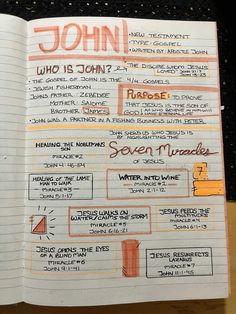 JOHN
- NEW TESTAMENT
- TYPE: GOSPEL
- WRITTEN BY: APOSTLE JOHN
WHO IS JOHN?
"THE DISCIPLE WHOM JESUS
LOVED"
- THE GOSPEL OF JOHN IS THE 4/4 GOSPELS.
- JEWISH FISHERMAN
- JOHNS FATHER: ZEBEDEE
MOTHER: SALOME
BROTHER: JAMES
PURPOSE: TO PROVE
THAT JESUS IS THE SON OF
GOD
HAVE ETERNAL LIFE
- JOHN WAS A PARTNER IN A FISHING BUSINESS WITH PETER
JOHN SHOWS US WHO JESUS IS
BY HIGHLIGHTING THE
Seven Miracles
OF JESUS.
HEALING THE NOBLEMANS
SON
MIRACLE #2
JOHN 4:46-54
HEALING OF THE LAME
MAN TO WALK
MIRACLE #3
JOHN 5:1-17
WATER INTO WINE
MIRACLE #1
JOHN 2:1-12
7
JESUS WALKS ON
WATER/CALMS THE STORM
MIRACLE #5
JOHN 6:16-21
JESUS FEEDS THE
MULTITUDES
MIRACLE #4
JOHN 6:1-13
JESUS OPENS THE EYES
OF A BLIND MAN
MIRACLE #6
JOHN 9:1-41
JESUS RESURRECTS
LAZARUS
MIRACLE #7
JOHN 11:1-45